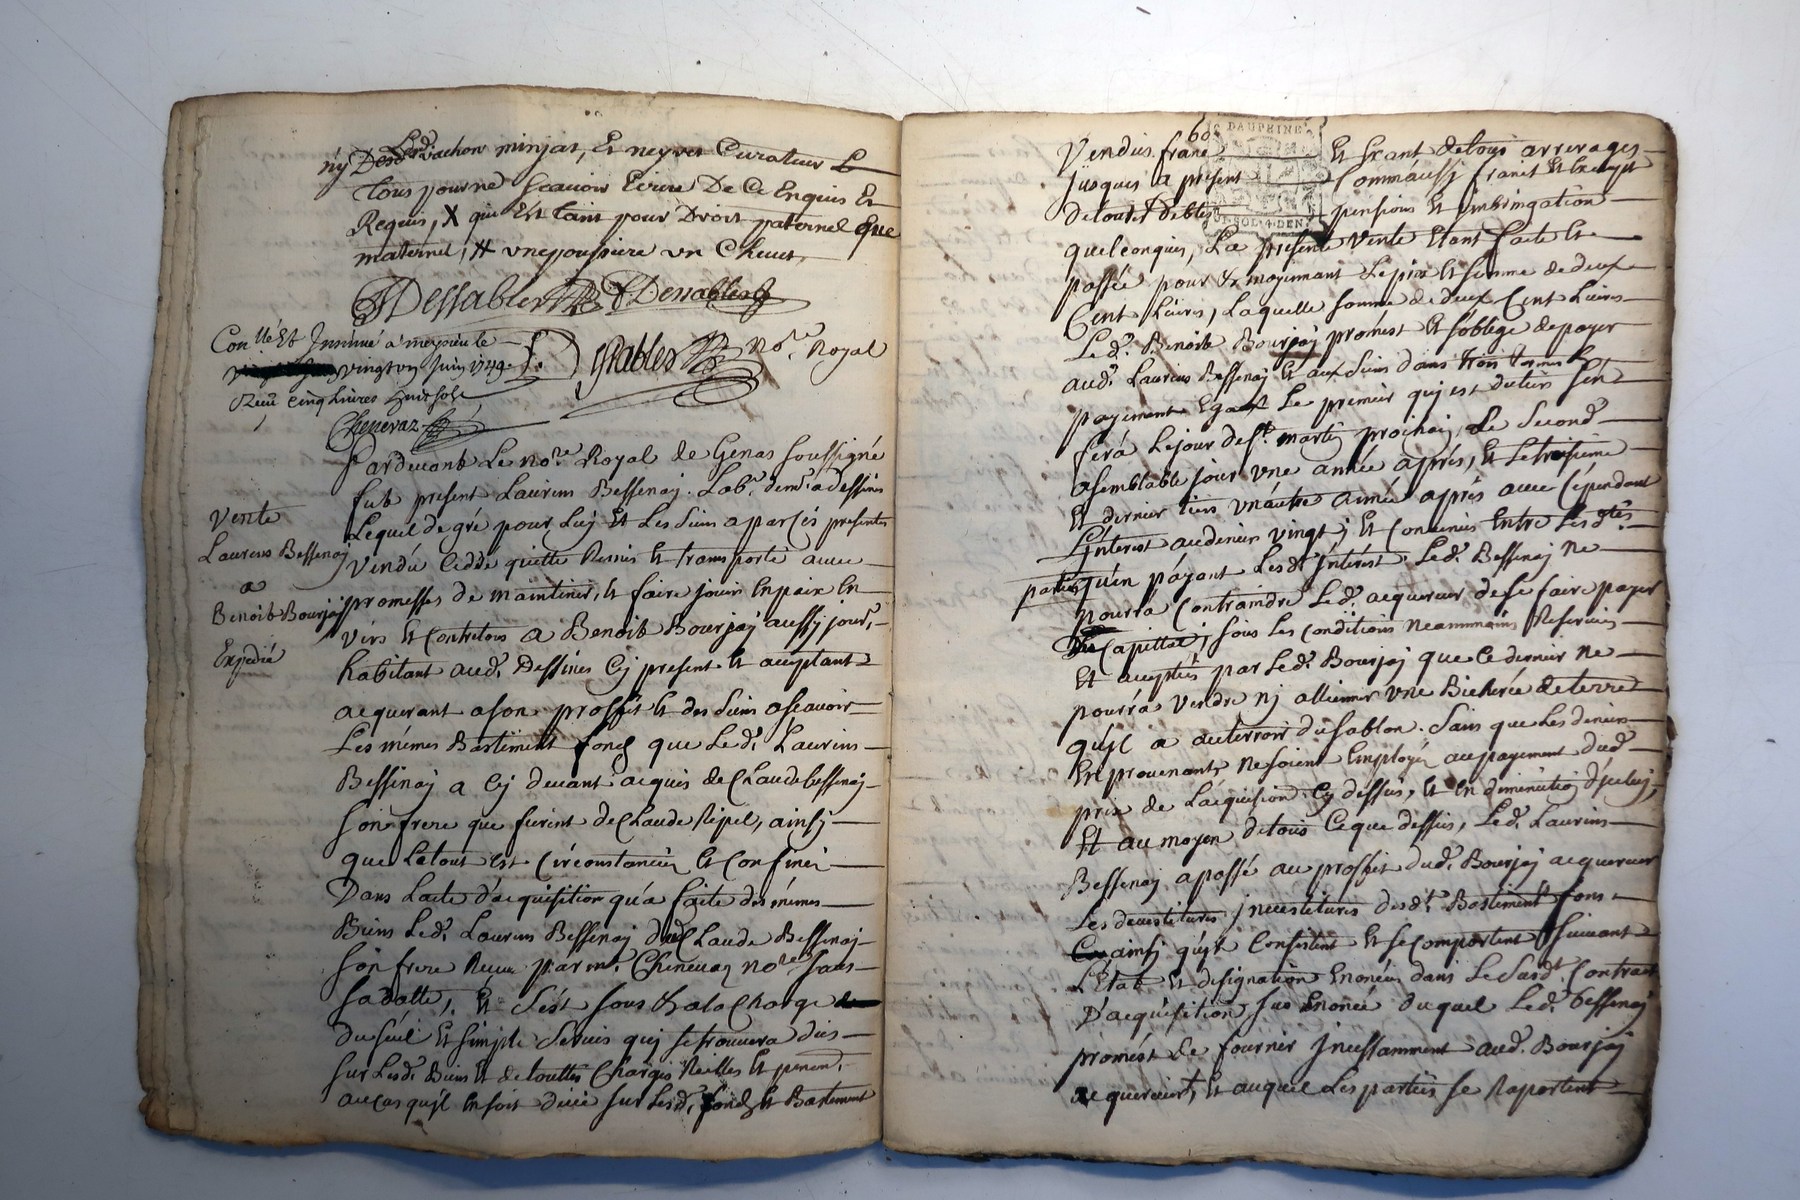 ny Desd. vachon minjat, Et neyret Curateur Et
tous pour ne Scauoir Ecrire De Ce Enquis Et
Requis, X qui Est tant pour Droit paternel que
maternel, # une joussiere un
Dessables Dessables
Con.lléEt Insinué a meyzieu le
vingttroy Juin 1749.
Receu Cinq Liures huit sols
Cheneraz
Dessables No.re Royal
Pardeuant Le no.re Royal de Genas soussigné
fut present Laurens Bessenaj. Lab.r dem.t a dessines
Lequel de gré pour Luj Et Les Siens a par Ces presentes
Vente
Laurens Bessenaj
a
Benoit Bourjaj
Expedié
Vendu Ceddé quitté Remis Et transporté auec
promesses de maintenir, Et faire jouir En paix En
Vers Et Contre tous a Benoit Bourjaj aussy jour.r
habitant aud. Dessines Cy present Et acceptant
acquerant a son proffit Et des Siens a Scauoir
Les mémes Bastiment fond que Led. Laurens
Bessenaj a Cy deuant acquis de Claude bessenaj
Son frere que furent de Claude Ripel, ainsj
que Le tout Est Circonstancié Et Confiné
Dans Lacte d'acquisition qu'a faite des mémes
Biens Led. Laurens Bessenaj dud Claude Bessenaj
son frere Receu par m.e Cheneuaz no.re Sous
sa datte, Et C'est sous La Charge
du seul Et simple Seruis quj se trouuera dus
sur Lesd. Biens Et de touttes Charges Réelles Et
au Cas qu'jl En soit deue sur Lesd. fonds Et Bastiment
60
DAUPHINE
SOL 4 DEN
Vendus. franc Et Exant de tous arrerages
jusques a present Comm'aussj franct Et Exempt
de toutes debtes pensions Et jmbringation
quelconques, La presente vente Etant faite Et
passée pour Et moyennant Le prix Et somme de deux
Cent Liures, Laquelle somme de deux Cent Liures
Led. Benoit Bourjaj promest Et soblige de payer
aud. Laurens Bessenaj Et aux Siens dans trois termes Et
payement Egaux Le premier quj est du tiers
sera Le jour de S.t martin prochain, Le Second
a semblable jour une année aprés, Et Le troisieme
Et dernier tiers un autre année aprés auec Cependant
Linterest au denier vingt, Et Conuenus Entre Lesd.tes
parties qu'en payant Lesd.t Intérest. Led. Bessenaj ne
pourra Contraindre Led. acquereur de se faire payer
Capittal, sous Les Conditions neammoins Reseruées
Et acceptées par Led. Bourjaj que Ce dernier ne
pourra vendre nj alliener une Bicherée de terre
qu'jl a au terroir du sablon. Sans que Les deniers
En prouenants ne soient Employés au payement dud
prix de Lacquisition Cy dessus, Et En diminution d'jceluj,
Et au moyen de tous Ce que dessus, Led. Laurens
Bessenaj a passé au proffit dud. Bourjaj acquereur
Les deuestitures jnuestitures desd.t Bastiment fons
ainsj qu'jl Consistent Et se Comportent Suiuant
L'Etat Et designation Enoncée dans Le Susd.t Contract
D'acquisition sus Enoncé duquel Led. bessenaj
promést de fournir Jncessamment aud. Bourjaj
acquereur, Et auquel Les parties se Raportent